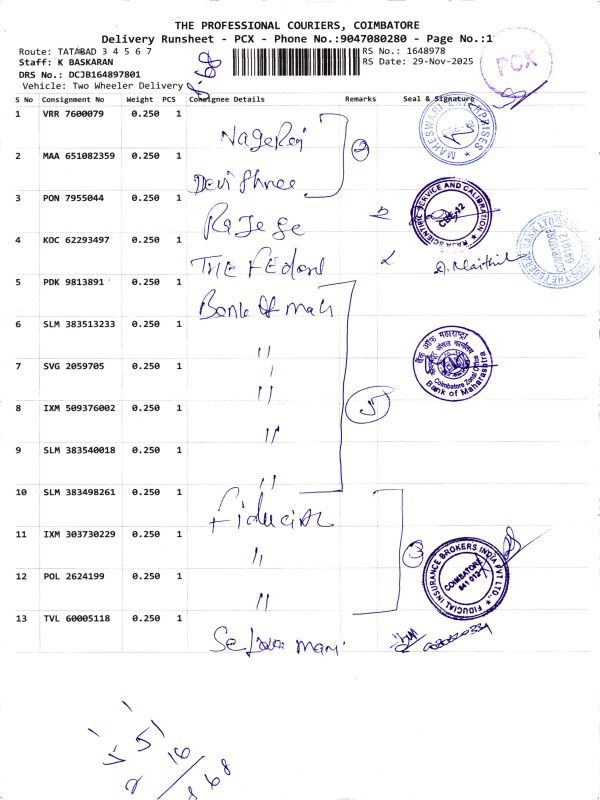 THE PROFESSIONAL COURIERS, COIMBATORE
Delivery Runsheet - PCX - Phone No.:9047080280 - Page No.:1
Route: TATABAD 3 4 5 6 7
RS No.: 1648978
Staff: K BASKARAN
RS Date: 29-Nov-2025
DRS No.: DCJB164897801
Vehicle: Two Wheeler Delivery
PCX
S No Consignment No Weight PCS Consignee Details Remarks Seal & Signature
1 VRR 7600079 0.250 1 Nageraj
MAHESWARI ENTERPRISES
2 MAA 651082359 0.250 1 Devi Shree
2
3 PON 7955044 0.250 1
SERVICE AND CALIBRATION
CBE-12
4 KOC 62293497 0.250 1 THE FEderal
COIMBATORE
641 012
5 PDK 9813891 0.250 1 Bank of mah
6 SLM 383513233 0.250 1 "
बैंक ऑफ महाराष्ट्र
Coimbatore Zonal Office
Bank of Maharashtra
7 SVG 2059705 0.250 1 "
8 IXM 509376002 0.250 1 "
5
9 SLM 383540018 0.250 1 "
10 SLM 383498261 0.250 1 Fiducial
11 IXM 303730229 0.250 1 "
3
FIDUCIAL INSURANCE BROKERS INDIA PVT LTD.,
COIMBATORE
641 012
12 POL 2624199 0.250 1 "
13 TVL 60005118 0.250 1 Selva mani